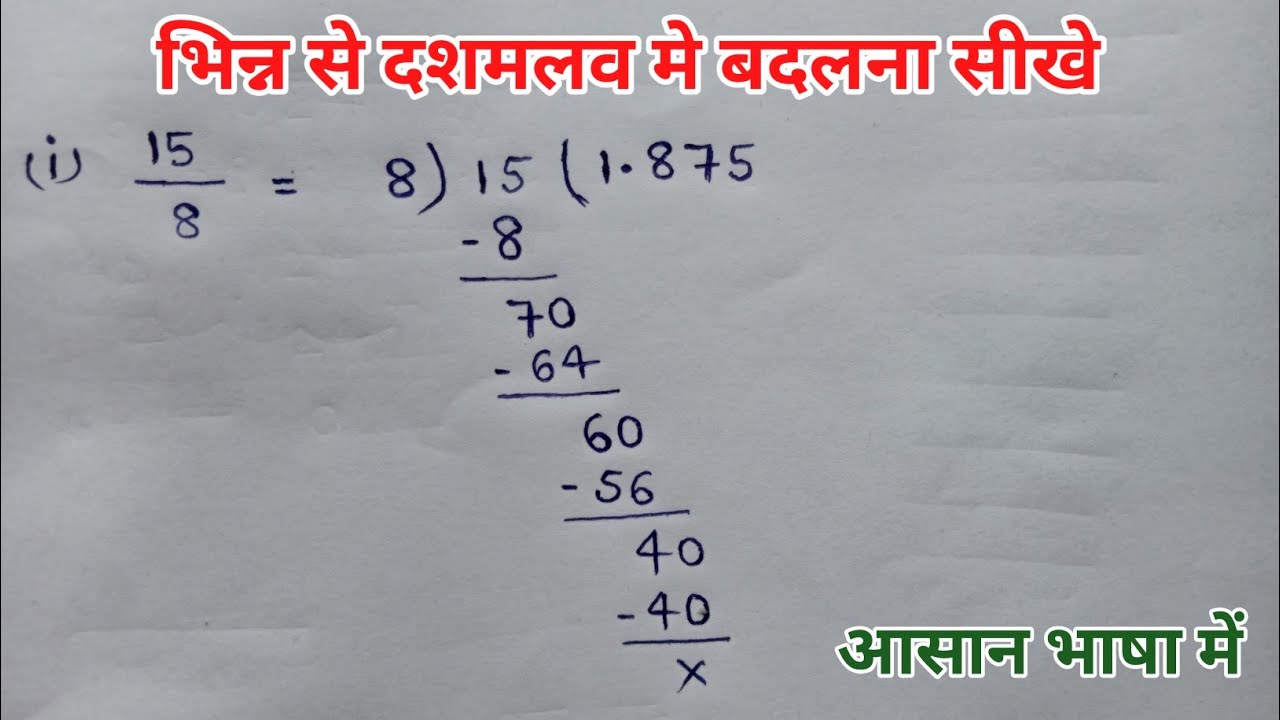 भिन्न से दशमलव मे बदलना सीखे
(i) 15/8 = 8) 15 (1.875
-8
70
-64
60
-56
40
-40
x
आसान भाषा में